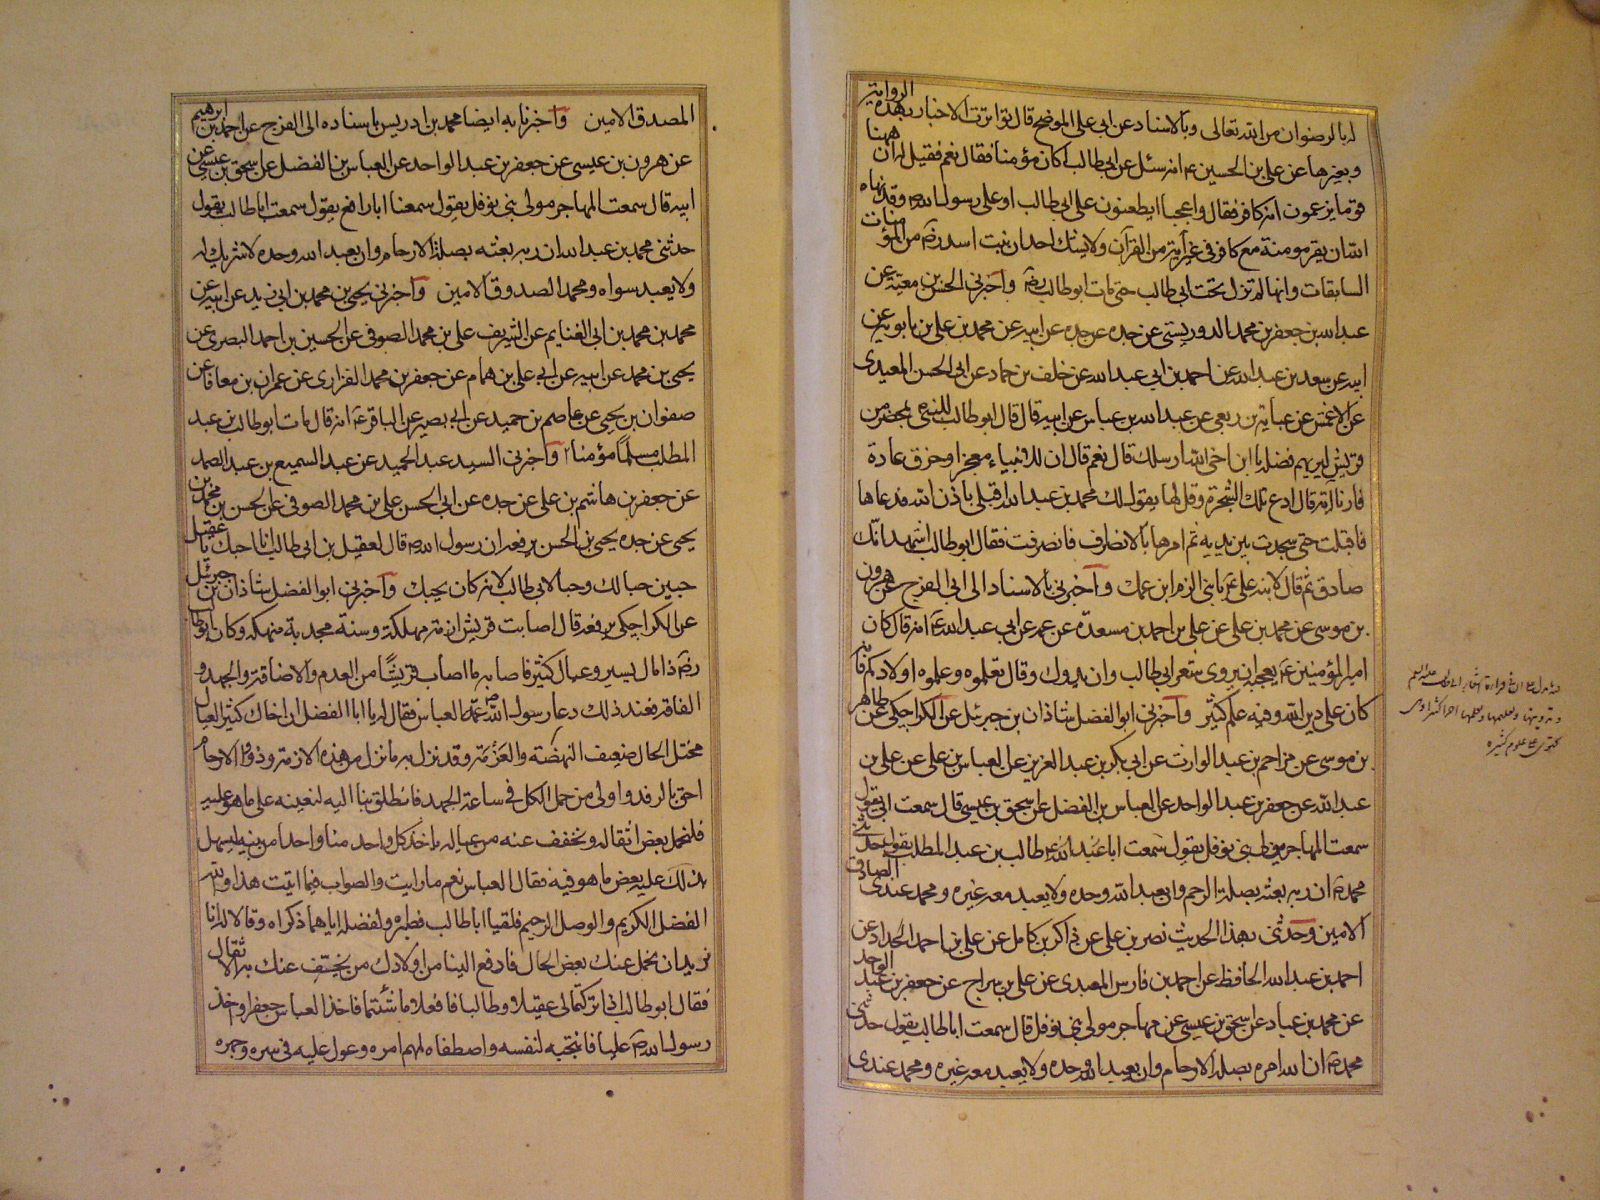 له بالرضوان من الله تعالى وبالاسناد عن ابى على الموضح قال تواترت الاخبار بهذه الرواية
وبغيرها عن على بن الحسين ع انه سئل عن ابى طالب اكان مؤمنا فقال نعم فقيل له ان ههنا
قوما يزعمون انه كافر فقال واعجبا ايطعنون على ابى طالب او على رسول الله ص وقد نهاه
الله ان يقر مومنة مع كافر فى غير آية من القرآن ولا يشك احد ان بنت اسد رض من المؤمنات
السابقات وانها لم تزل تحت ابى طالب حتى مات ابو طالب رض واخبرنى الحسن بن معية عن
عبد الله بن جعفر بن محمد الدوريستى عن جده عن جده عن ابيه عن محمد بن على بن بابويه عن
ابيه عن سعد بن عبد الله عن احمد بن ابى عبد الله عن خلف بن حماد عن ابى الحسن العبدى
عن الاعمش عن عباية بن ربعى عن عبد الله بن عباس عن ابيه قال قال ابو طالب للنبى ص بمحضر من
قريش ليريهم فضله يا ابن اخى الله ارسلك قال نعم قال ان للانبياء معجزا وخرق عادة
فارنا اية قال ادع تلك الشجرة وقل لها يقول لك محمد بن عبد الله اقبلى باذن الله فدعاها
فاقبلت حتى سجدت بين يديه ثم امرها بالانصراف فانصرفت فقال ابو طالب اشهد انك
صادق ثم قال لابنه على ع يا بنى الزم ابن عمك واخبرنى بالاسناد الى ابى الفرج عن هرون
بن موسى عن محمد بن على عن على بن احمد بن مسعدة عن عمه عن ابى عبد الله ع انه قال كان
امير المؤمنين ع يعجبه ان يروى شعر ابى طالب وان يدون وقال تعلموه وعلموه اولادكم فانه
كان على دين الله وفيه علم كثير واخبرنى ابو الفضل شاذان بن جبرئيل عن الكراجكى عن طاهر
بن موسى عن مزاحم بن عبد الوارث عن ابى بكر بن عبد العزيز عن العباس بن على عن على بن
عبد الله عن جعفر بن عبد الواحد عن العباس بن الفضل عن اسحق بن عيسى قال سمعت ابى يقول
سمعت المهاجر مولى بنى نوفل يقول سمعت ابا عبد الله ع طالب بن عبد المطلب يقول حدثنى
محمد ص ان ربه بعثه بصلة الرحم وان يعبد الله وحده ولا يعبد معه غيره ومحمد عندى الصادق
الامين وحدثنى بهذا الحديث نصر بن على عن ذاكر بن كامل عن على بن احمد الحداد عن
احمد بن عبد الله الحافظ عن احمد بن فارس المعبدى عن على بن سراج عن جعفر بن عبد الواحد
عن محمد بن عباد عن اسحق بن عيسى عن مهاجر مولى بنى نوفل قال سمعت ابا طالب يقول حدثنى
محمد ص ان الله امره بصلة الارحام وان يعبد الله وحده ولا يعبد معه غيره ومحمد عندى
علوم كثيره
المصدق الامين واخبرنا به ايضا محمد بن ادريس باسناده الى ابى الفرج عن احمد بن ابرهيم
عن هرون بن عيسى عن جعفر بن عبد الواحد عن العباس بن الفضل عن اسحق بن عيسى عن
ابيه قال سمعت المهاجر مولى بنى نوفل يقول سمعنا ابا رافع يقول سمعت ابا طالب يقول
حدثنى محمد بن عبد الله ان ربه بعثه بصلة الارحام وان يعبد الله وحده لا شريك له
ولا يعبد سواه ومحمد الصدوق الامين واخبرنى يحيى بن محمد بن ابى زيد عن ابيه عن
محمد بن محمد بن ابى الغنايم عن الشريف على بن محمد الصوفى عن الحسين بن احمد البصرى عن
يحيى بن محمد عن ابيه عن ابى على بن همام عن جعفر بن محمد الفزارى عن عمران بن معافا عن
صفوان بن يحيى عن عاصم بن حميد عن ابى بصير عن الباقر ع انه قال مات ابو طالب بن عبد
المطلب مسلما مؤمنا واخبرنى السيد عبد الحميد عن عبد السميع بن عبد الصمد
عن جعفر بن هاشم بن على عن جده عن ابى الحسن على بن محمد الصوفى عن الحسن بن محمد بن
يحيى عن جده يحيى بن الحسن يرفعه ان رسول الله ص قال لعقيل بن ابى طالب انا احبك يا عقيل
حبين حبا لك وحبا لابى طالب لانه كان يحبك واخبرنى ابو الفضل شاذان بن جبرئيل
عن الكراجكى يرفعه قال اصابت قريش ازمة مهلكة وسنة مجدبة منهكة وكان ابو طالب
رض ذا مال يسير وعيال كثير فاصابه ما اصاب قريشا من العدم والاضاقة والجهد و
الفاقة فعند ذلك دعا رسول الله ص عمه العباس فقال له يا ابا الفضل ان اخاك كثير العيال
مختل الحال ضعيف النهضة والعزمة وقد نزل به ما نزل من هذه الازمة وذووا الارحام
احق بالرفد واولى من حمل الكل فى ساعة الجهد فانطلق بنا اليه لنعينه على ما هو عليه
فلنحمل بعض اثقاله ونخفف عنه من عياله ياخذ كل واحد منا واحدا من بنيه ليسهل
بذلك عليه بعض ما هو فيه فقال العباس نعم ما رايت والصواب فيما اتيت هذا والله
الفضل الكريم والوصل الرحيم فلقيا ابا طالب فصبراه ولفضل اياهما ذكراه وقالا له انا
نريد ان نحمل عنك بعض الحال فادفع الينا من اولادك من يخف عنك به الاثقال
فقال ابو طالب اذا تركتما لى عقيلا وطالبا فافعلا ما شئتما فاخذ العباس جعفرا واخذ
رسول الله ص عليا فانتجبه لنفسه واصطفاه لمهم امره وعول عليه فى سره وجهره